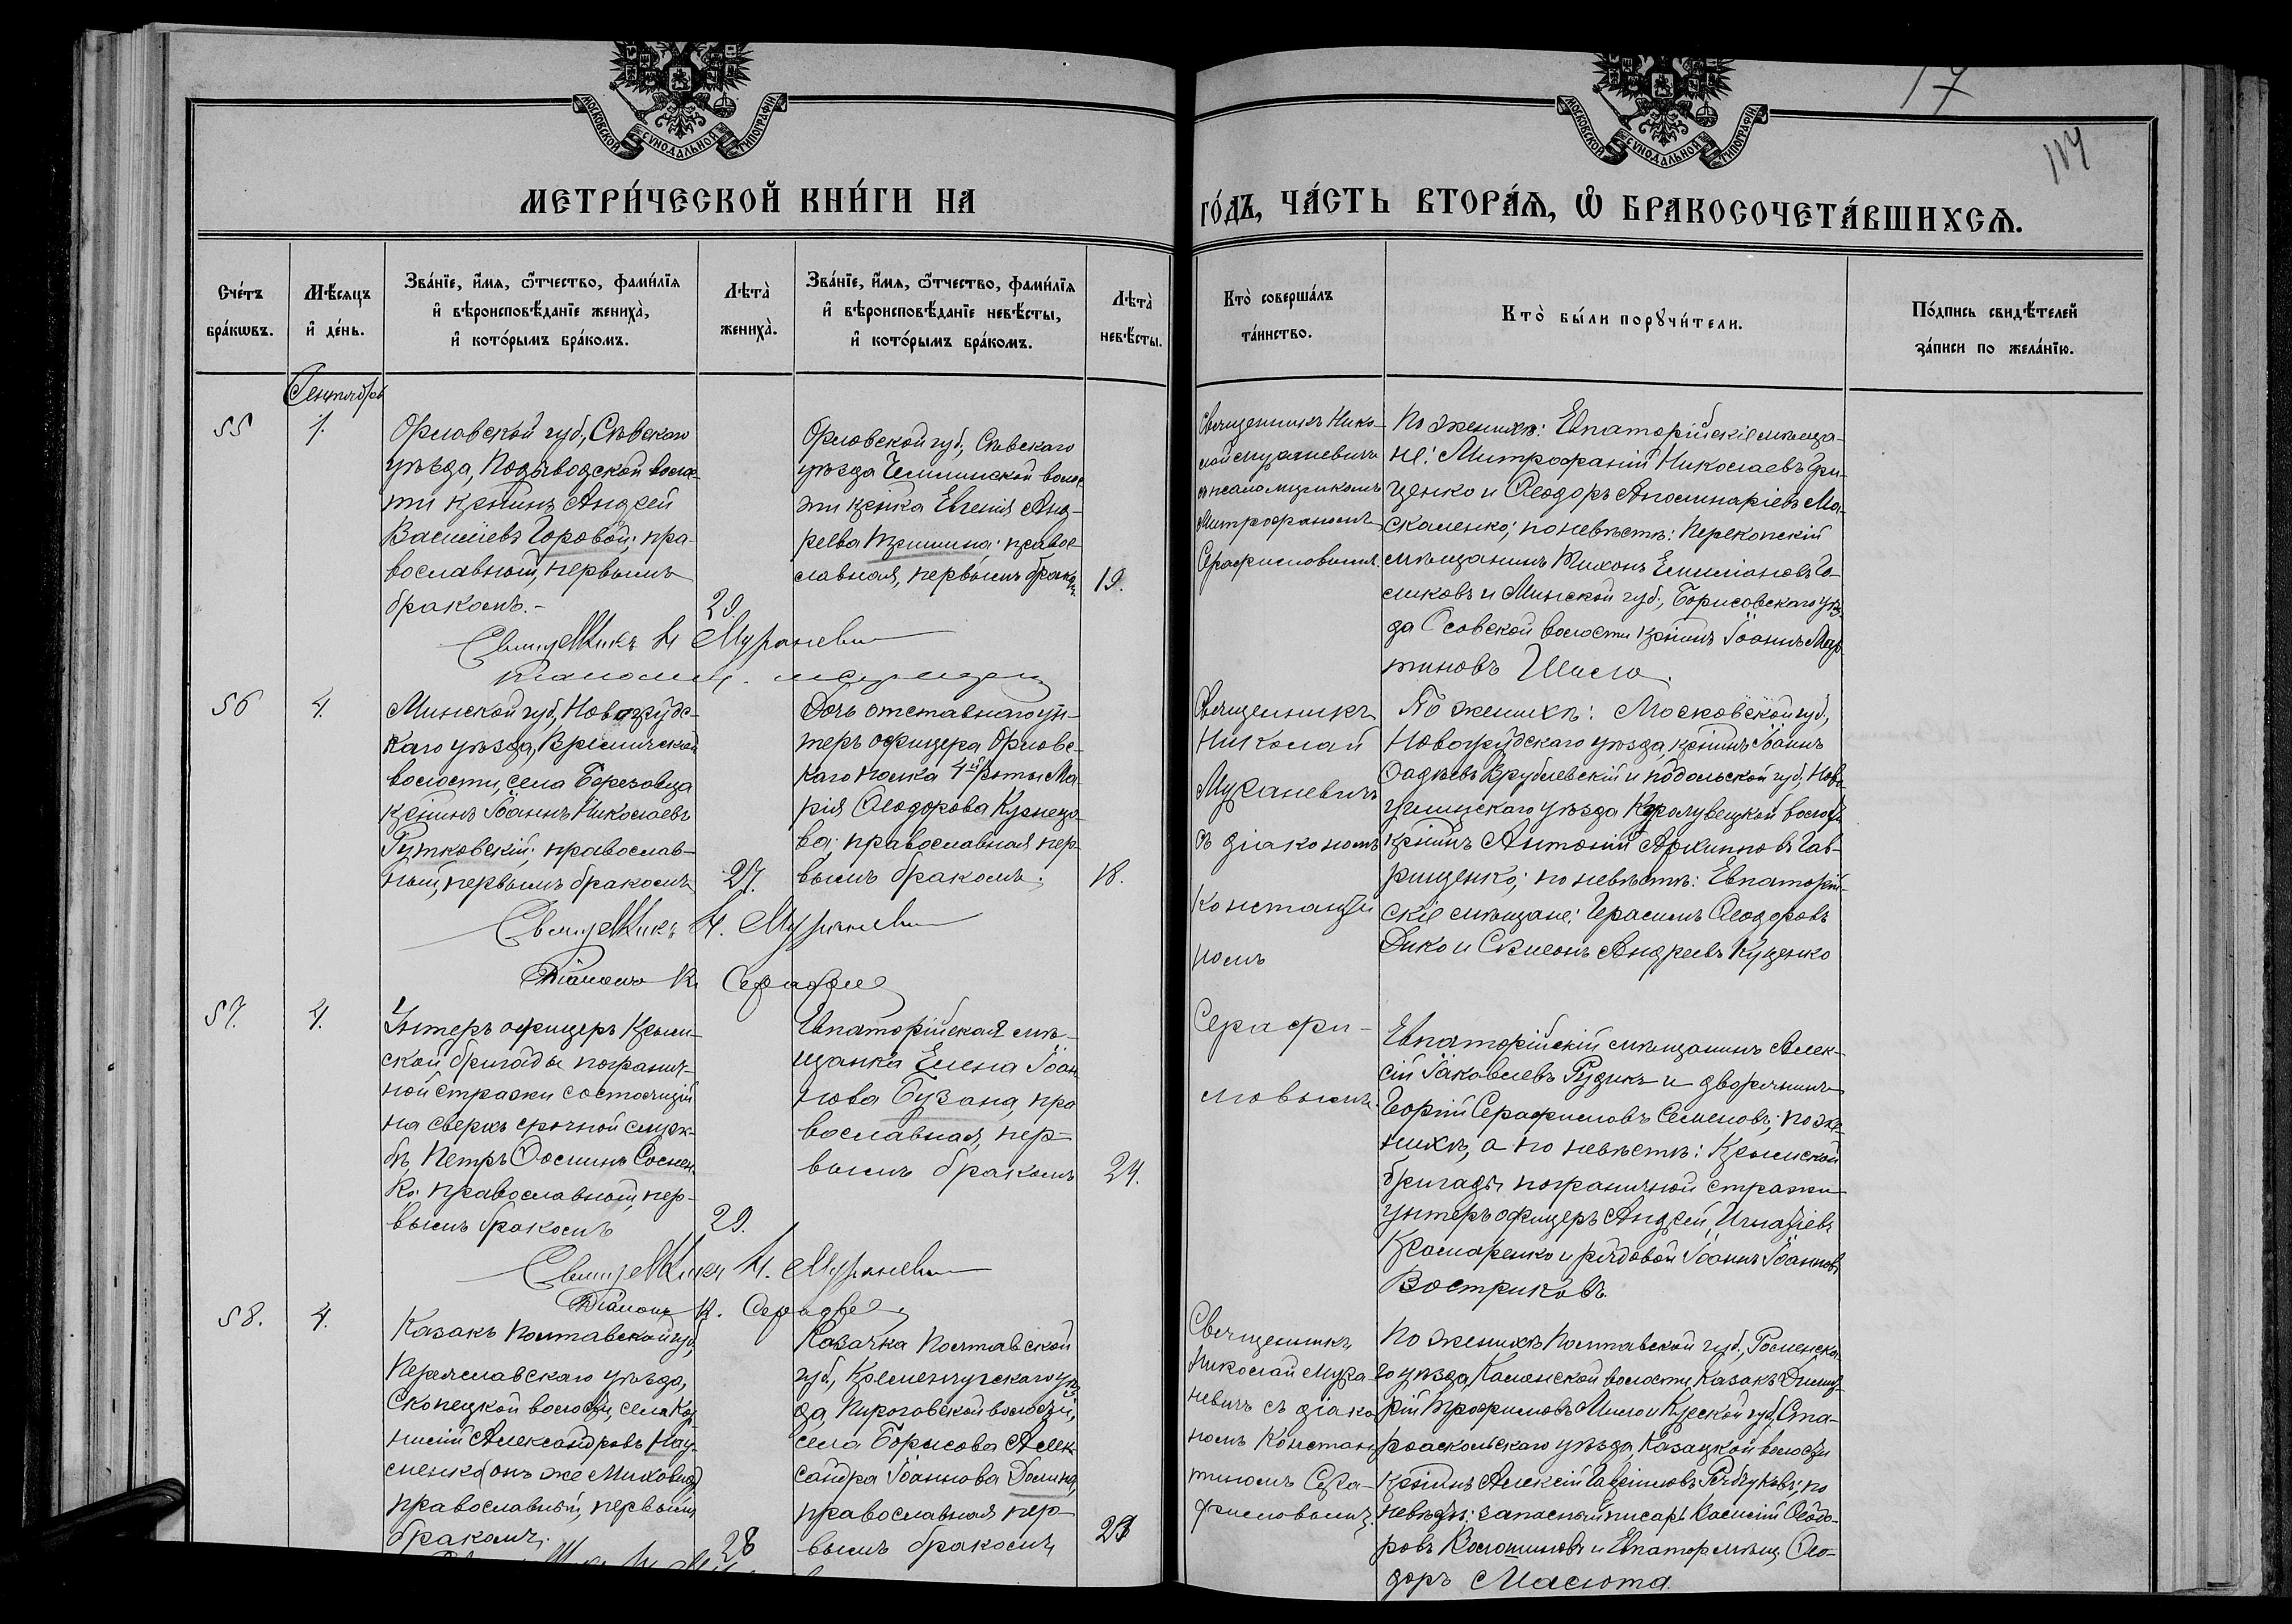 МОСКОВСКОЙ СѴНОДАЛЬНОЙ ТИПОГРАФІИ
МОСКОВСКОЙ СѴНОДАЛЬНОЙ ТИПОГРАФІИ
17
МЕТРИ́ЧЕСКОЙ КНИ́ГИ НА
ГО́ДЪ, ЧА́СТЬ ВТОРА́Ѧ, Ѽ БРАКОСОЧЕТА́ВШИХСѦ.
Сче́тъ
бра́кѡвъ.
Мѣ́сяцъ
и҆ де́нь.
Зва́нїе, и҆́мѧ, ѻ҆́тчество, фами́лїѧ
и҆ вѣроисповѣ́данїе жениха̀,
и҆ кото́рымъ бра́комъ.
Лѣта̀
жениха̀.
Зва́нїе, и҆́мѧ, ѻ҆́тчество, фами́лїѧ
и҆ вѣроисповѣ́данїе невѣ́сты,
и҆ кото́рымъ бра́комъ.
Лѣта̀
невѣ́сты.
Кто̀ соверша́лъ
та́инство.
Кто̀ бы́ли порꙋчи́тели.
По́дпись свидѣ́телей
за́писи по жела́нїю.
Сентябрь
55
1.
Орловской губ., Сѣвскаго
уѣзда, Подывотской волос-
ти кр-нинъ Андрей
Василіевъ Горовой; пра-
вославный, первымъ
бракомъ.-
29
Орловской губ., Сѣвскаго
уѣзда волос-
ти кр-нка Евгенія Анд-
реева Гришина; правос-
славная, первымъ бракомъ
19.
Священникъ Нико-
лай Мураневичъ
съ псаломщикомъ
Митрофаномъ
Серафимовымъ
По женихѣ: Евпаторійскіе мѣща-
не: Митрофаній Николаевъ Гри-
ценко и Ѳеодоръ Аполинаріевъ Мо-
скаленко; по невѣстѣ: Перекопскій
мѣщанинъ Тихонъ Емиліановъ Го-
ликовъ и Минской губ., Борисовскаго уѣз-
да Осовской волости кр-нинъ Іоаннъ Мар-
тиновъ Шило.
Священникъ Н Мураневич
56
4.
Минской губ., Новогрудс-
каго уѣзда, волости, села Березовца
кр-нинъ Іоаннъ Николаевъ
Рутковскій; православ-
ный, первымъ бракомъ
27.
Дочь отставного ун-
теръ офицера Орловс-
каго полка 4-й роты Ма-
рія Ѳеодорова Кузнецо-
ва; православная пер-
вымъ бракомъ.
18.
Священникъ
Николай
Мураневичъ
съ діакономъ
Константи
номъ
Серафи-
мовымъ.
По женихѣ: Московской губ.,
Новогрудскаго уѣзда, кр-нинъ Іоаннъ
Ѳадѣевъ Врублевскій и Подольской губ., Ново-
ушицскаго уѣзда волости
кр-нинъ Антоній Архиповъ Гав-
рищенко; по невѣстѣ: Евпаторій-
скіе мѣщане: Герасимъ Ѳеодоровъ
Дико и Симеонъ Андреевъ Куценко
Священникъ Н. Мураневич
Діаконъ К. Серафи
57.
4.
Унтеръ офицеръ Крым-
ской бригады погранич-
ной стражи состоящій
на сверхъ срочной служ-
бѣ, Петръ Ѳоминъ Соснен
ко; православный, пер-
вымъ бракомъ
29.
Евпаторійская мѣ-
щанка Елена Іоан
нова Бузана, пра
вославная, пер-
вымъ бракомъ
24.
Евпаторійскій мѣщанинъ Алек-
сій Іаковлевъ Рудикъ и дворянинъ
Георгій Серафимовъ Семеновъ; по же-
нихѣ, а по невѣстѣ: Крымской
бригады пограничной стражи
унтеръ офицеръ Андрей Игнатіевъ
Крамаренко и рядовой Іоаннъ Іоанновъ
Востриковъ.
Священникъ Н. Мураневич
Діаконъ К. Серафи
58.
4.
Казакъ Полтавской губ.,
Переяславскаго уѣзда,
Скопецкой волости, села Кор-
нилій Александровъ Нау-
менко (онъ же )
православный, первымъ
бракомъ;
28
Казачка Полтавской
губ., Кременчугскаго уѣз
да, Пироговской волости,
села Борисова Алек-
сандра Іоаннова Долина,
православная пер-
вымъ бракомъ
23
Священникъ
Николай Мура-
невичъ съ діако
номъ Констан
тиномъ Сера-
фимовымъ.
По женихѣ Полтавской губ., Роменска-
го уѣзда, волости, Казакъ Димит-
рій Трофимовъ Мило и Курской губ., Ста-
рооскольскаго уѣзда Казацкой волости
кр-нинъ Алексій Гавріиловъ Рябуковъ; по
невѣстѣ: запасный писарь Василій Ѳеодо-
ровъ Волошиновъ и Евпатор. мѣщ. Ѳео-
доръ Масюта.